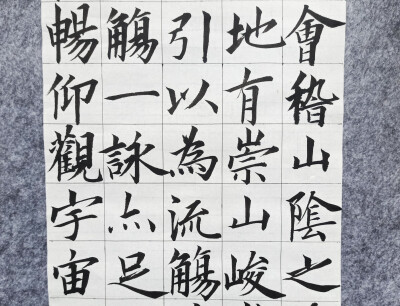 會稽山陰之
地有崇山峻
引以為流觴
觴一詠亦足
暢仰觀宇宙